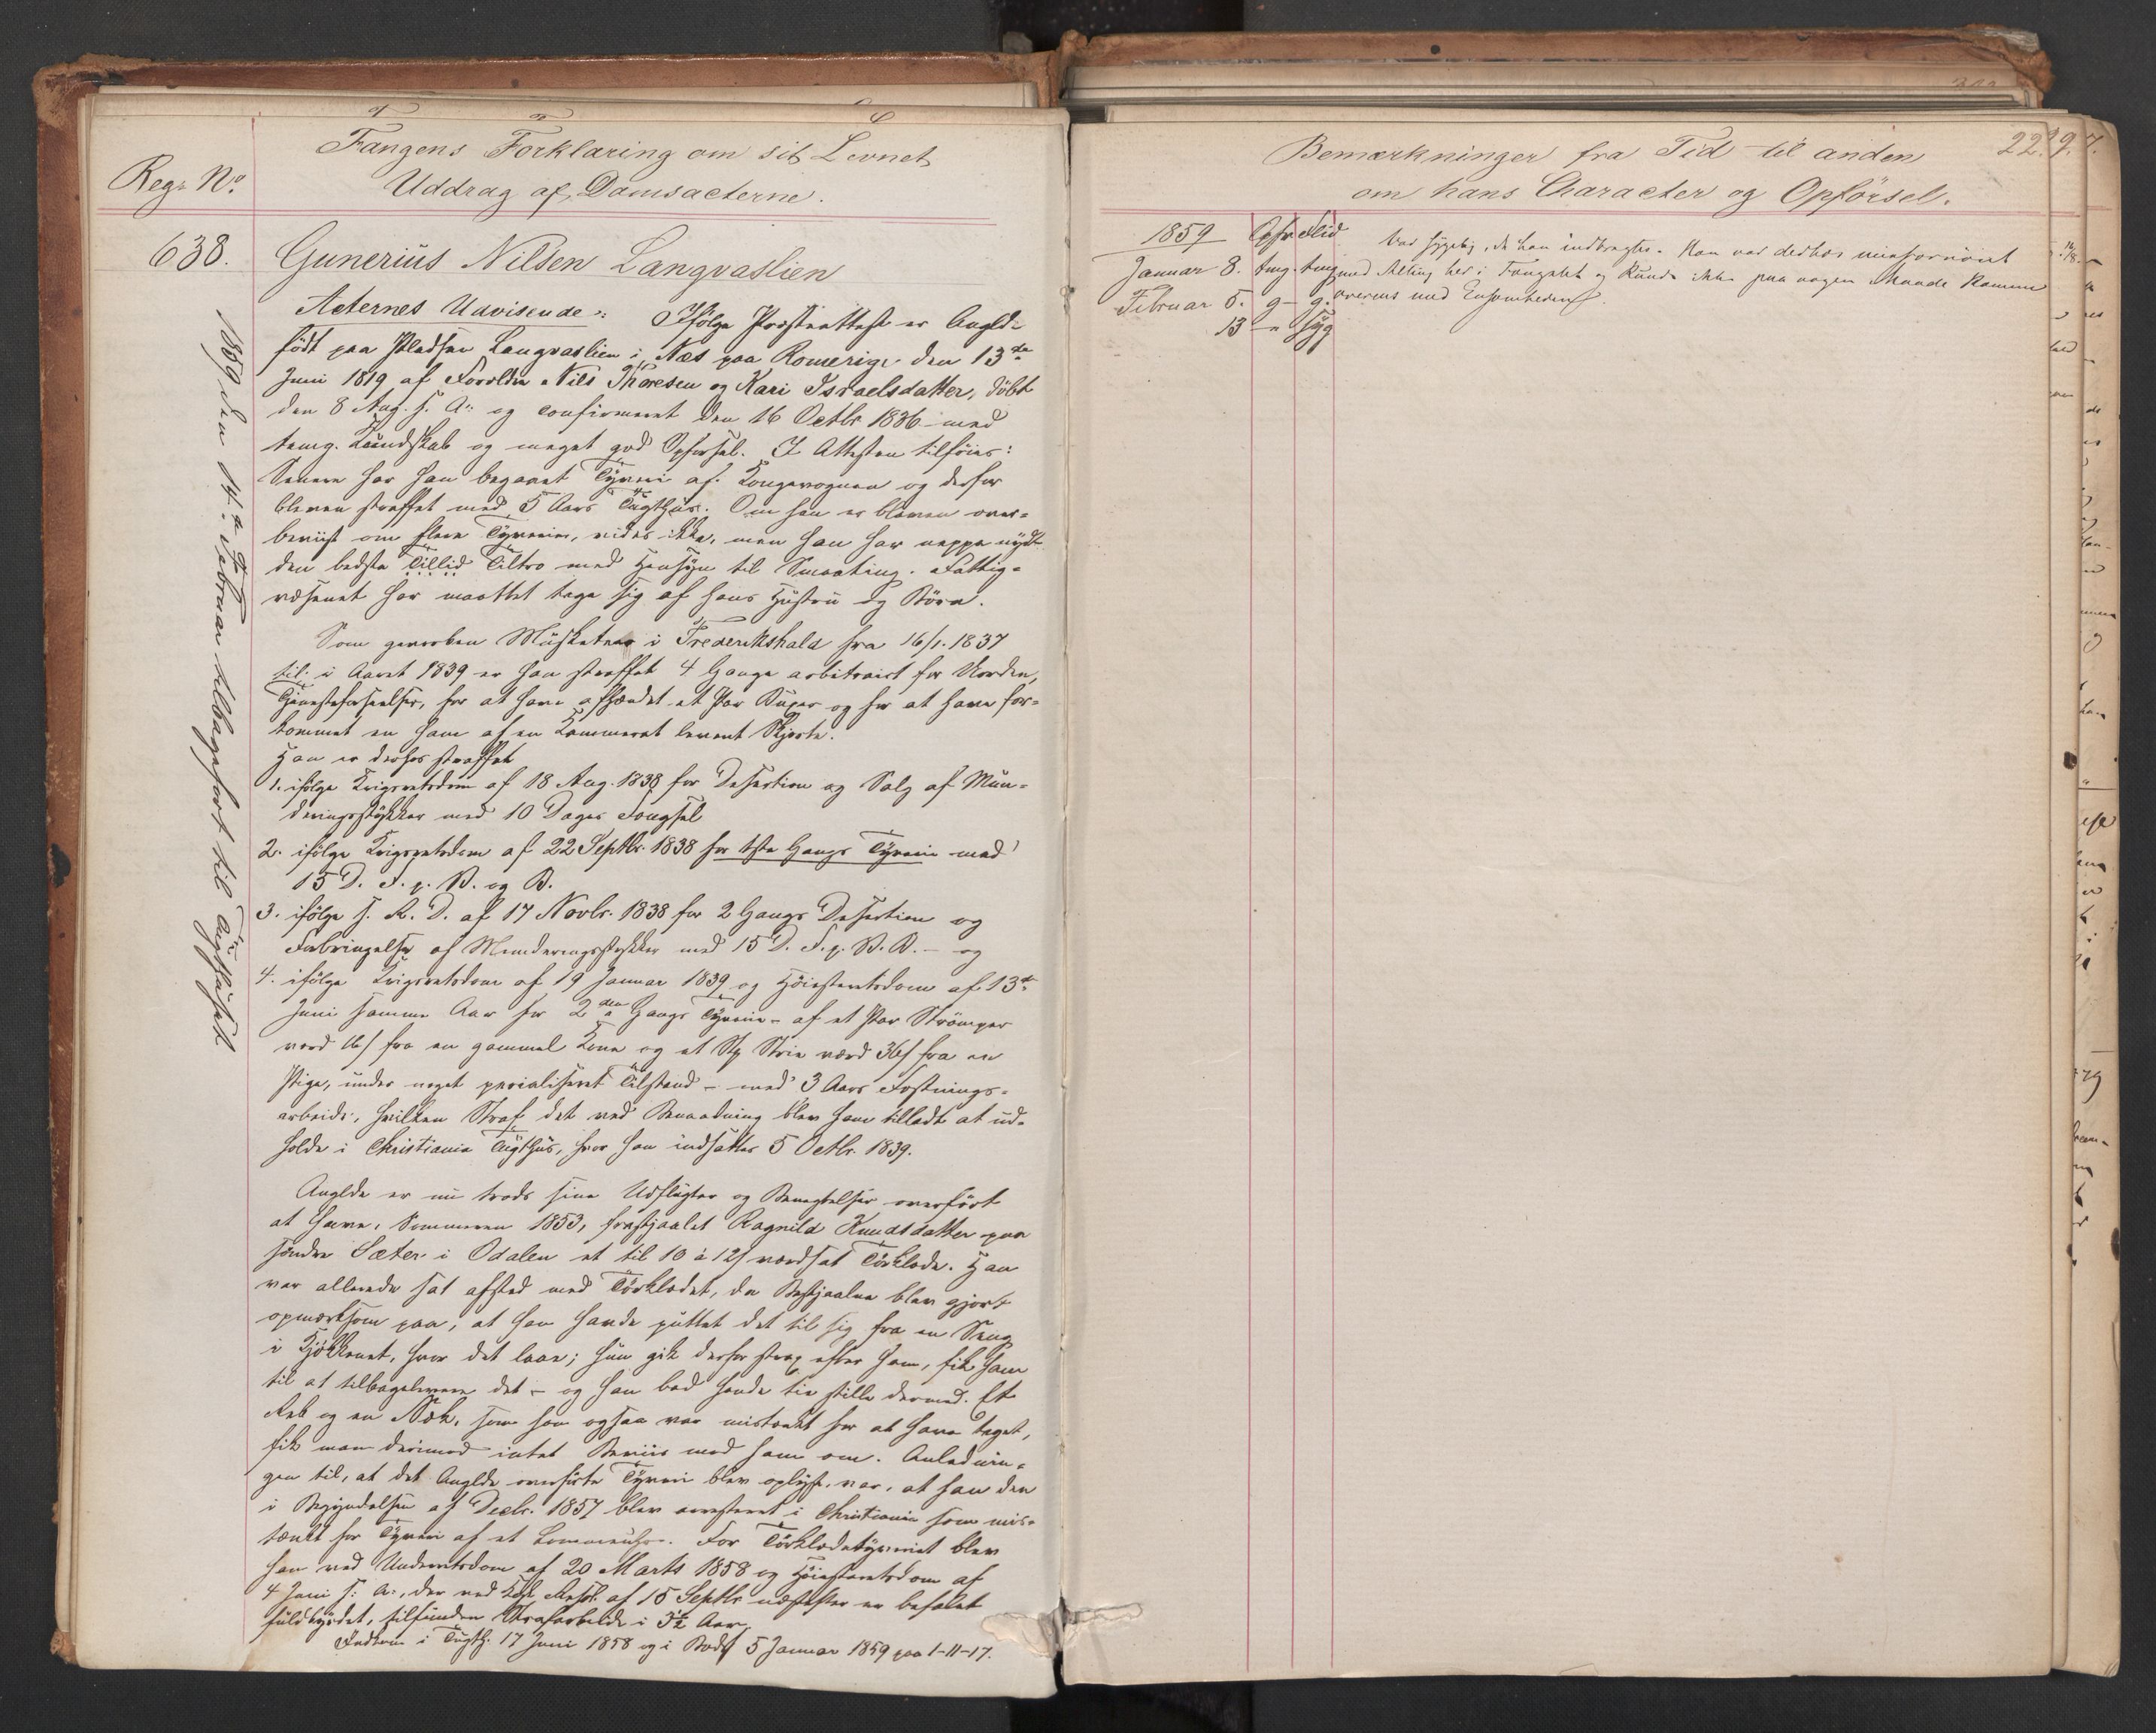 Reg: No.
Fangens Forklaring om sit Levnet
Uddrag af Domsacterne.
638.
Gunerius Nilsen Langvaslien
Acternes Udvisende: Ifölge Præsteattest er Anglde
födt paa Pladsen Langvaslien i Næs paa Romerige den 13de
Juni 1819 af Forældre Nils Thoresen og Kari Israelsdatter, döbt
den 8 Aug. s. A. og confirmeret den 16 Octbr 1836 med
temg. Kundskab og meget god Opförsel. I Attesten tilföies:
Senere har han begaaet Tyveri af Kongevognen og derfor
bleven straffet med 5 Aars Tugthus. Om han er bleven over-
beviist om flere Tyverier, vides ikke, men han har neppe nydt
den bedste Tillid Tiltro med Hensyn til Smaating. Fattig-
væsenet har maattet tage sig af hans Hustru og Börn.
Som gevorben Musketeer i Frederikshald fra 16/1. 1837
til i Aaret 1839 er han straffet 4 Gange arbitrairt for Uorden,
Tjenesteforseelser, for at have afhændet et Par Buxer og for at have for-
kommet en ham af en Kammerat leveret Skjorte.
Han er derhos straffet
1. ifölge Krigsretsdom af 18 Aug. 1838 for Desertion og Salg af Mun-
deringsstykker med 10 Dages Fængsel
2. ifölge Krigsretsdom af 22 Septbr. 1838 for 1ste Gangs Tyverie med
15 D. F. p. V. og B.
3. ifölge s. K. D. af 17 Novbr. 1838 for 2 Gangs Desertion og
Forbringelse af Munderingsstykker med 15 D. F. p. V. B. - og
4. ifölge Krigsretsdom af 19 Januar 1839 og Höiesteretsdom af 13de
Juni samme Aar for 2den Gangs Tyverie - af et Par Strömper
værd fra en gammel Kone og et Stk Strie værd 36 s fra en
Pige, under noget Tilstand - med 3 Aars Fæstnings-
arbeide, hvilken Straf det ved Benaadning blev ham tilladt at ud-
holde i Christiania Tugthus, hvor han indsattes 5 Octbr. 1839.
Anglde er nu trods sine Udflugter og Benægtelser overfört
at have, Sommeren 1853, frastjaalet Ragnild Knudsdatter paa
söndre Sæter i Odalen et til 10 à 12 s værdsat Törklæde. Han
var allerede sat afsted med Törklædet, da Bestjaalne blev gjort
opmærksom paa, at han havde puttet det til sig fra en Seng
i Kjökkenet, hvor det laae; hun gik derfor strax efter ham, fik ham
til at tilbagelevere det - og han bad hende tie stille dermed. Et
Reb og en Sæk, som han ogsaa var mistænkt for at have taget,
fik man derimod intet Beviis mod ham om. Anlednin-
gen til, at det Anglde overförte Tyveri blev oplyst, var, at han den
i Begyndelsen af Decbr. 1857 blev arresteret i Christiania som mis-
tænkt for Tyveri af et Lommeuhr. For Törklædetyveriet blev
han ved Underretsdom af 20 Marts 1858 og Höiesteretsdom af
4 Juni s. A., der ved Kgl. Resol. af 15 Septbr næstefter er befalet
fuldbyrdet, tilfunden Strafarbeide i 3½ Aar.
Indkom i Tugth. 17 Juni 1858 og i Bodsf 5 Januar 1859 paa 1-11-17.
1859 den 14de Februar tilbagefört til Tugthuset
Bemærkninger fra Tid til anden
om hans Character og Opförsel.
229.
1859 Opfr Flid
Januar 8. tmg. tmg
Februar 5. g- g.
13 -" syg
Var sygelig, da han indbragtes. Han var derhos misfornöiet
med Alting her i Fængslet og kunde ikke paa nogen Maade komme
overens med Ensomheden.